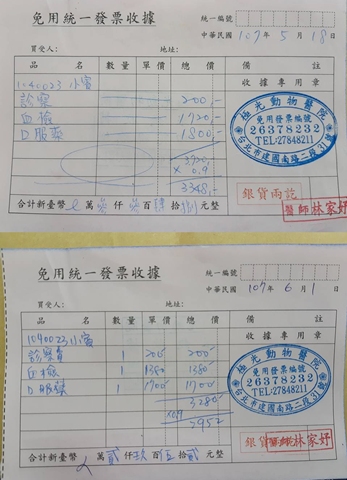 免用統一發票收據
統一編號
中華民國 107年 5月 18日
買受人： 地址：
品名 數量 單價 總價 備註
1040023 小濱 收據專用章
診察 200,-
血檢 1720,-
口服藥 1800,-
3720,-
× 0.9
3348,-
極光動物醫院
免用發票編號
26378232
TEL:27848211
台北市建國南路二段31號
銀貨兩訖
醫師林家妤
合計新臺幣 萬 仟 百 拾 元整
免用統一發票收據
統一編號
中華民國 107年 6月 1日
買受人： 地址：
品名 數量 單價 總價 備註
1040023 小濱 收據專用章
診察費 1 200 200
血檢 1 1380 1380
口服藥 1 1700 1700
3280
×0.9
2952
極光動物醫院
免用發票編號
26378232
TEL:27848211
台北市建國南路二段31號
銀貨
醫師林家妤
合計新臺幣 萬貳仟玖百伍拾貳元整